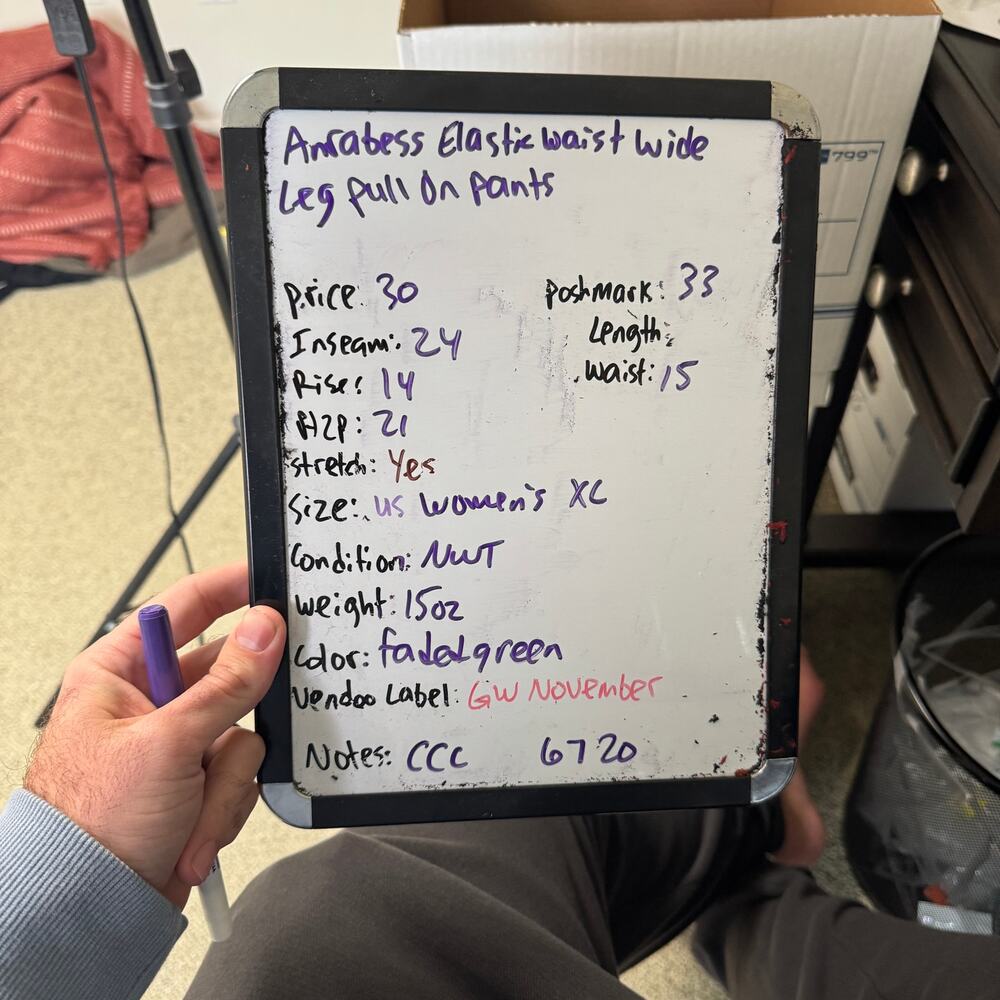 Anrabess Elastic Waist Wide
Leg Pull On Pants
Price: 30
Poshmark: 33
Inseam: 24
Length:
Rise: 14
Waist: 15
P12P: 21
Stretch: Yes
Size: US Women's XL
Condition: NWT
Weight: 15oz
Color: faded green
Vendoo Label: GW November
Notes: CCC 6720
799™